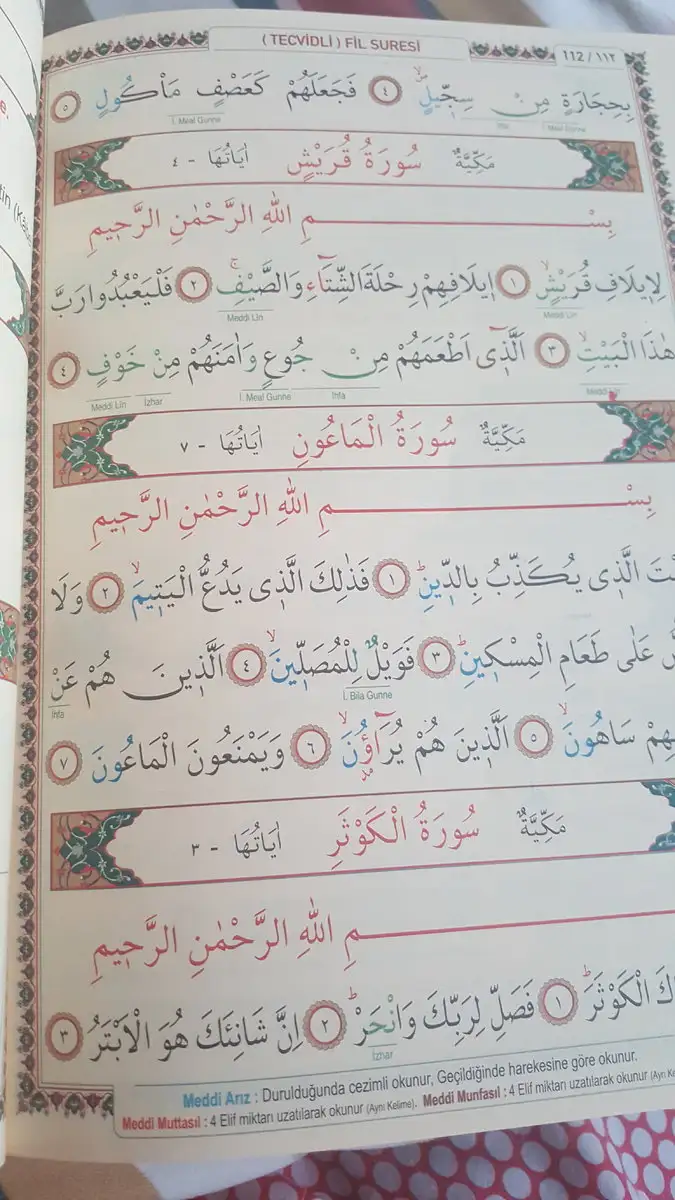 ( TECVİDLİ ) FİL SURESİ
112 / ١١٢
بِحِجَارَةٍ مِنْ سِجّ۪يلٍۙ ﴿٤﴾ فَجَعَلَهُمْ كَعَصْفٍ مَأْكُولٍ ﴿٥﴾
İ. Meal Gunne İhfa İ. Meal Gunne
مَكِّيَّةٌ سُورَةُ قُرَيْشٍ اٰيَاتُهَا - ٤
بِسْمِ اللّٰهِ الرَّحْمٰنِ الرَّح۪يمِ
لِا۪يلَافِ قُرَيْشٍۙ ﴿١﴾ ا۪يلَافِهِمْ رِحْلَةَ الشِّتَٓاءِ وَالصَّيْفِۚ ﴿٢﴾ فَلْيَعْبُدُوا رَبَّ
Meddi Lin Meddi Lin
هٰذَا الْبَيْتِۙ ﴿٣﴾ اَلَّذ۪ٓي اَطْعَمَهُمْ مِنْ جُوعٍ وَاٰمَنَهُمْ مِنْ خَوْفٍ ﴿٤﴾
Meddi Lin İzhar İ. Meal Gunne İhfa Meddi Lin
مَكِّيَّةٌ سُورَةُ الْمَاعُونِ اٰيَاتُهَا - ٧
بِسْمِ اللّٰهِ الرَّحْمٰنِ الرَّح۪يمِ
الَّذ۪ي يُكَذِّبُ بِالدّ۪ينِۜ ﴿١﴾ فَذٰلِكَ الَّذ۪ي يَدُعُّ الْيَت۪يمَۙ ﴿٢﴾ وَلَا
عَلٰى طَعَامِ الْمِسْك۪ينِۜ ﴿٣﴾ فَوَيْلٌ لِلْمُصَلّ۪ينَۙ ﴿٤﴾ اَلَّذ۪ينَ هُمْ عَنْ
İhfa İ. Bila Gunne
سَاهُونَۙ ﴿٥﴾ اَلَّذ۪ينَ هُمْ يُرَٓاؤُ۫نَۙ ﴿٦﴾ وَيَمْنَعُونَ الْمَاعُونَ ﴿٧﴾
مَكِّيَّةٌ سُورَةُ الْكَوْثَرِ اٰيَاتُهَا - ٣
مِ اللّٰهِ الرَّحْمٰنِ الرَّح۪يمِ
الْكَوْثَرَۜ ﴿١﴾ فَصَلِّ لِرَبِّكَ وَانْحَرْۜ ﴿٢﴾ اِنَّ شَانِئَكَ هُوَ الْاَبْتَرُ ﴿٣﴾
İzhar
Meddi Arız : Durulduğunda cezimli okunur, Geçildiğinde harekesine göre okunur.
Meddi Muttasıl : 4 Elif miktarı uzatılarak okunur (Aynı Kelime). Meddi Munfasıl : 4 Elif miktarı uzatılarak okunur